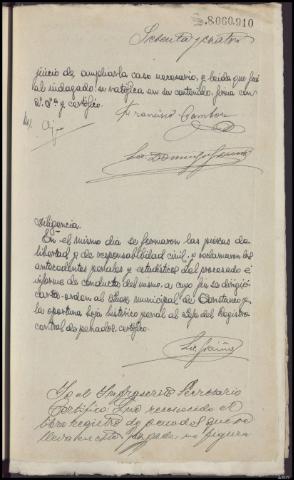 S.8060,910
Sesenta y cuatro
juicio de ampliarla caso necesario, y leída que fué
al indagado se ratifica en su contenido, firma con
S.S.ª y certifico.
Francisco
Diligencia.
En el mismo dia se formaron las piezas de
libertad y de responsabilidad civil, y reclamaron los
antecedentes penales y estadistica del procesado é
informe de conducta del mismo, a cuyo fin se dirigió
carta-orden al Juez municipal de y
la oportuna hoja histórico penal al Jefe del Registro
central de penados, certifico.
Yo el Infrascrito Secretario
Certifico: Que reconocido el
libro registro de penados que se
lleva en este juzgado, no figura